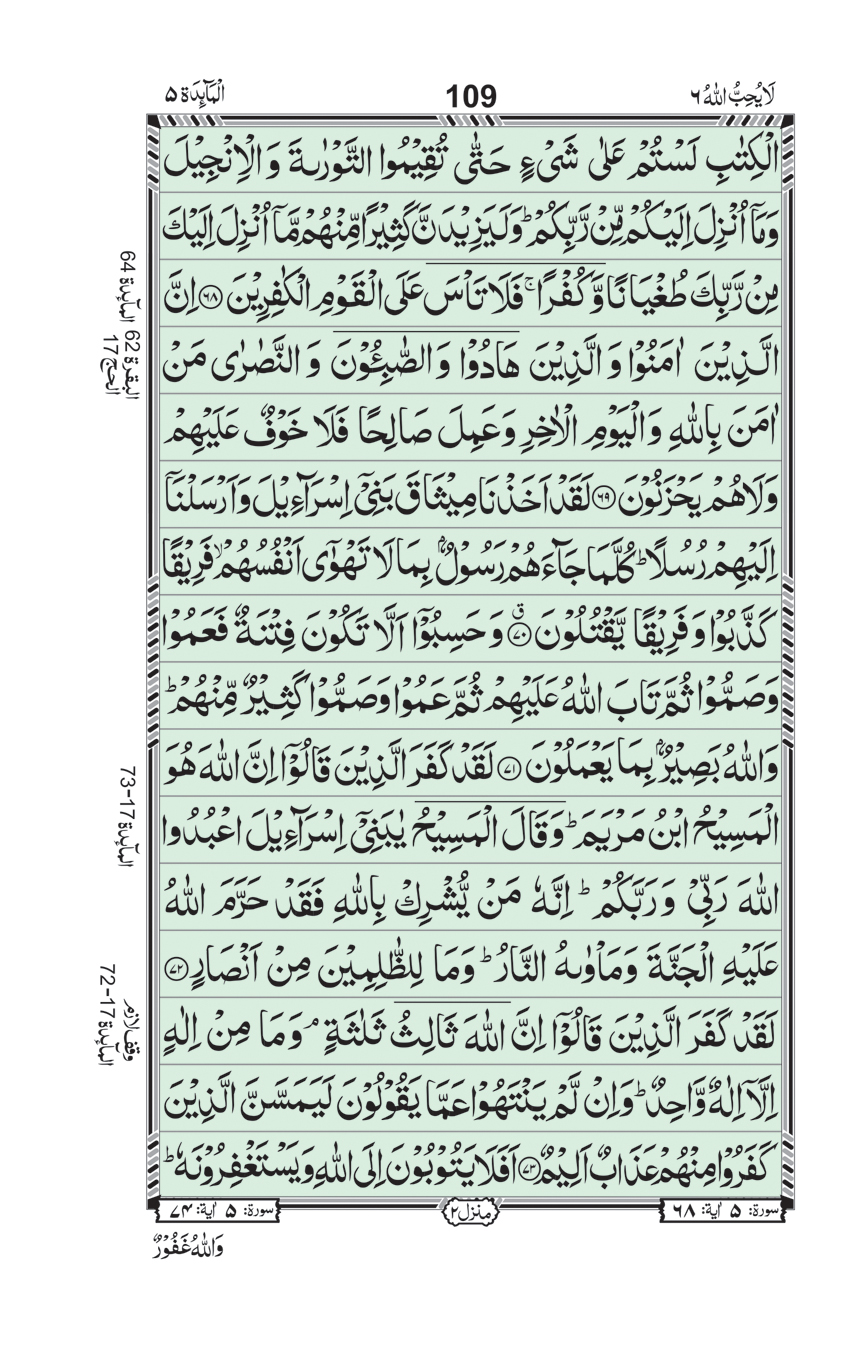 لَا يُحِبُّ اللّٰهُ ٦
109
اَلْمَآئِدَة ۵
الْكِتٰبِ لَسْتُمْ عَلٰى شَىْءٍ حَتّٰى تُقِيْمُوا التَّوْرٰىةَ وَ الْاِنْجِيْلَ
وَمَاۤ اُنْزِلَ اِلَيْكُمْ مِّنْ رَّبِّكُمْ ؕ وَلَيَزِيْدَنَّ كَثِيْرًا مِّنْهُمْ مَّاۤ اُنْزِلَ اِلَيْكَ
مِنْ رَّبِّكَ طُغْيَانًا وَّكُفْرًا ۚ فَلَا تَاْسَ عَلَى الْقَوْمِ الْكٰفِرِيْنَ ﴿۶۸﴾ اِنَّ
الَّذِيْنَ اٰمَنُوْا وَ الَّذِيْنَ هَادُوْا وَ الصّٰبِئُوْنَ وَ النَّصٰرٰى مَنْ
اٰمَنَ بِاللّٰهِ وَ الْيَوْمِ الْاٰخِرِ وَعَمِلَ صَالِحًا فَلَا خَوْفٌ عَلَيْهِمْ
وَلَا هُمْ يَحْزَنُوْنَ ﴿۶۹﴾ لَقَدْ اَخَذْنَا مِيْثَاقَ بَنِىْۤ اِسْرَآءِيْلَ وَاَرْسَلْنَاۤ
اِلَيْهِمْ رُسُلًا ؕ كُلَّمَا جَآءَهُمْ رَسُوْلٌۢ بِمَا لَا تَهْوٰٓى اَنْفُسُهُمْ ۙ فَرِيْقًا
كَذَّبُوْا وَ فَرِيْقًا يَّقْتُلُوْنَ ق ﴿۷۰﴾ وَ حَسِبُوْۤا اَلَّا تَكُوْنَ فِتْنَةٌ فَعَمُوْا
وَصَمُّوْا ثُمَّ تَابَ اللّٰهُ عَلَيْهِمْ ثُمَّ عَمُوْا وَصَمُّوْا كَثِيْرٌ مِّنْهُمْ ؕ
وَاللّٰهُ بَصِيْرٌۢ بِمَا يَعْمَلُوْنَ ﴿۷۱﴾ لَقَدْ كَفَرَ الَّذِيْنَ قَالُوْۤا اِنَّ اللّٰهَ هُوَ
الْمَسِيْحُ ابْنُ مَرْيَمَ ؕ وَقَالَ الْمَسِيْحُ يٰبَنِىْۤ اِسْرَآءِيْلَ اعْبُدُوا
اللّٰهَ رَبِّىْ وَ رَبَّكُمْ ؕ اِنَّهٗ مَنْ يُّشْرِكْ بِاللّٰهِ فَقَدْ حَرَّمَ اللّٰهُ
عَلَيْهِ الْجَنَّةَ وَمَاْوٰىهُ النَّارُ ؕ وَمَا لِلظّٰلِمِيْنَ مِنْ اَنْصَارٍ ﴿۷۲﴾
لَقَدْ كَفَرَ الَّذِيْنَ قَالُوْۤا اِنَّ اللّٰهَ ثَالِثُ ثَلٰثَةٍ ۘ وَمَا مِنْ اِلٰهٍ
اِلَّاۤ اِلٰهٌ وَّاحِدٌ ؕ وَاِنْ لَّمْ يَنْتَهُوْا عَمَّا يَقُوْلُوْنَ لَيَمَسَّنَّ الَّذِيْنَ
كَفَرُوْا مِنْهُمْ عَذَابٌ اَلِيْمٌ ﴿۷۳﴾ اَفَلَا يَتُوْبُوْنَ اِلَى اللّٰهِ وَيَسْتَغْفِرُوْنَهٗ ؕ
64 المآىٕدة
62 البقرة
17 الحج
73-17 المآىٕدة
وقف لازم
72-17 المآىٕدة
سورة: ۵ اٰية: ۶۸
منزل ۲
سورة: ۵ اٰية: ۷۴
وَاللّٰهُ غَفُوْرٌ